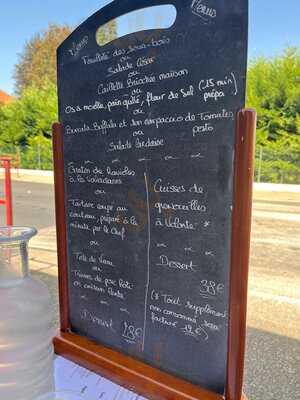 Menu
Menu
Feuilleté des sous-bois
ou
Salade César
ou
Caillette Briochée maison
ou
Os à moelle, pain grillé, fleur de Sel (15 min)
prépa
ou
Burrata Buffala et son carpaccio de Tomates
ou
pesto
Salade Landaise
Gratin de Ravioles
à la
ou
Tartare coupé au
couteau, préparé à la
minute par le Chef
ou
Tête de Veau
ou
Travers de porc Rôti
en cuisson lente
Dessert
28€
Cuisses de
grenouilles
à Volonté *
Dessert
38€
(* Tout supplément
non consommé sera
facturé 12€)